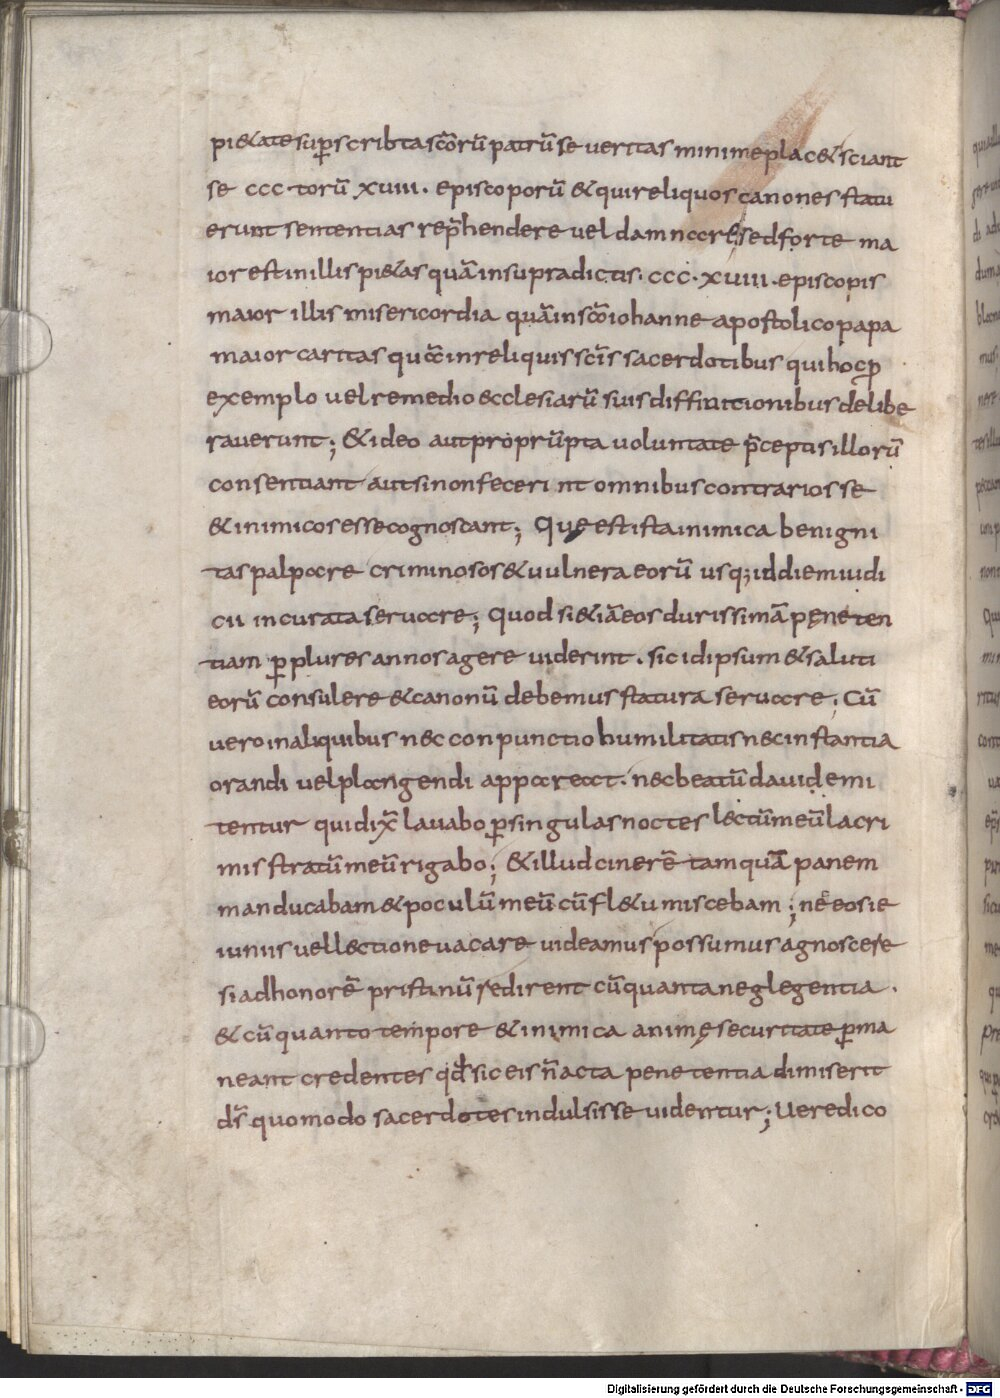 pi&ate sup̄scribta sc̄orū patrū severitas minime plac& sciant
se ccc torū xviii. episcoporū & qui reliquos canones statu
erunt sententias rep̄hendere vel damnare; sed forte ma
ior est in illis pi&as quā in supradictis. ccc. xviii. episcopis
maior illis misericordia quā in sc̄o iohanne apostolico papa
maior caritas quā in reliquis sc̄is sacerdotibus qui hoc ꝓ
exemplo vel remedio ecclesiarū suis diffinitionibus delibe
raverunt; & ideo aut propriūpta voluntate p̄ceptis illorū
consentiant aut si non fecerint omnibus contrarios se
& inimicos esse cognoscant; Quę est ista inimica benigni
tas palpare criminosos & vulnera eorū usq; in diem iudi
cii incurata servare; Quod si &iā eos durissimā pęneten
tiam ꝑ plures annos agere viderint. sic id ipsum & saluti
eorū consulere & canonū debemus statura servare; Cū
vero in aliquibus nec conpunctio humilitatis nec instantia
orandi vel plangendi appareat. nec beatū david emi
tentur qui dix̄ lavabo ꝑ singulas noctes lectū meū lacri
mis stratū meū rigabo; & illud cinerē tamquā panem
manducabam & poculū meū cū fl&u miscebam; nec eos ie
iuniis vel lectione vacare videamus possumus agnoscere
si ad honorē pristinū redirent cū quanta neglegentia.
& cū quanto tempore & inimica animę securitate ꝑma
neant credentes qđ sic eis n̄ acta penetentia dimiserit
d̄s quomodo sacerdotes indulsisse videntur; Veredico
Digitalisierung gefördert durch die Deutsche Forschungsgemeinschaft - DFG